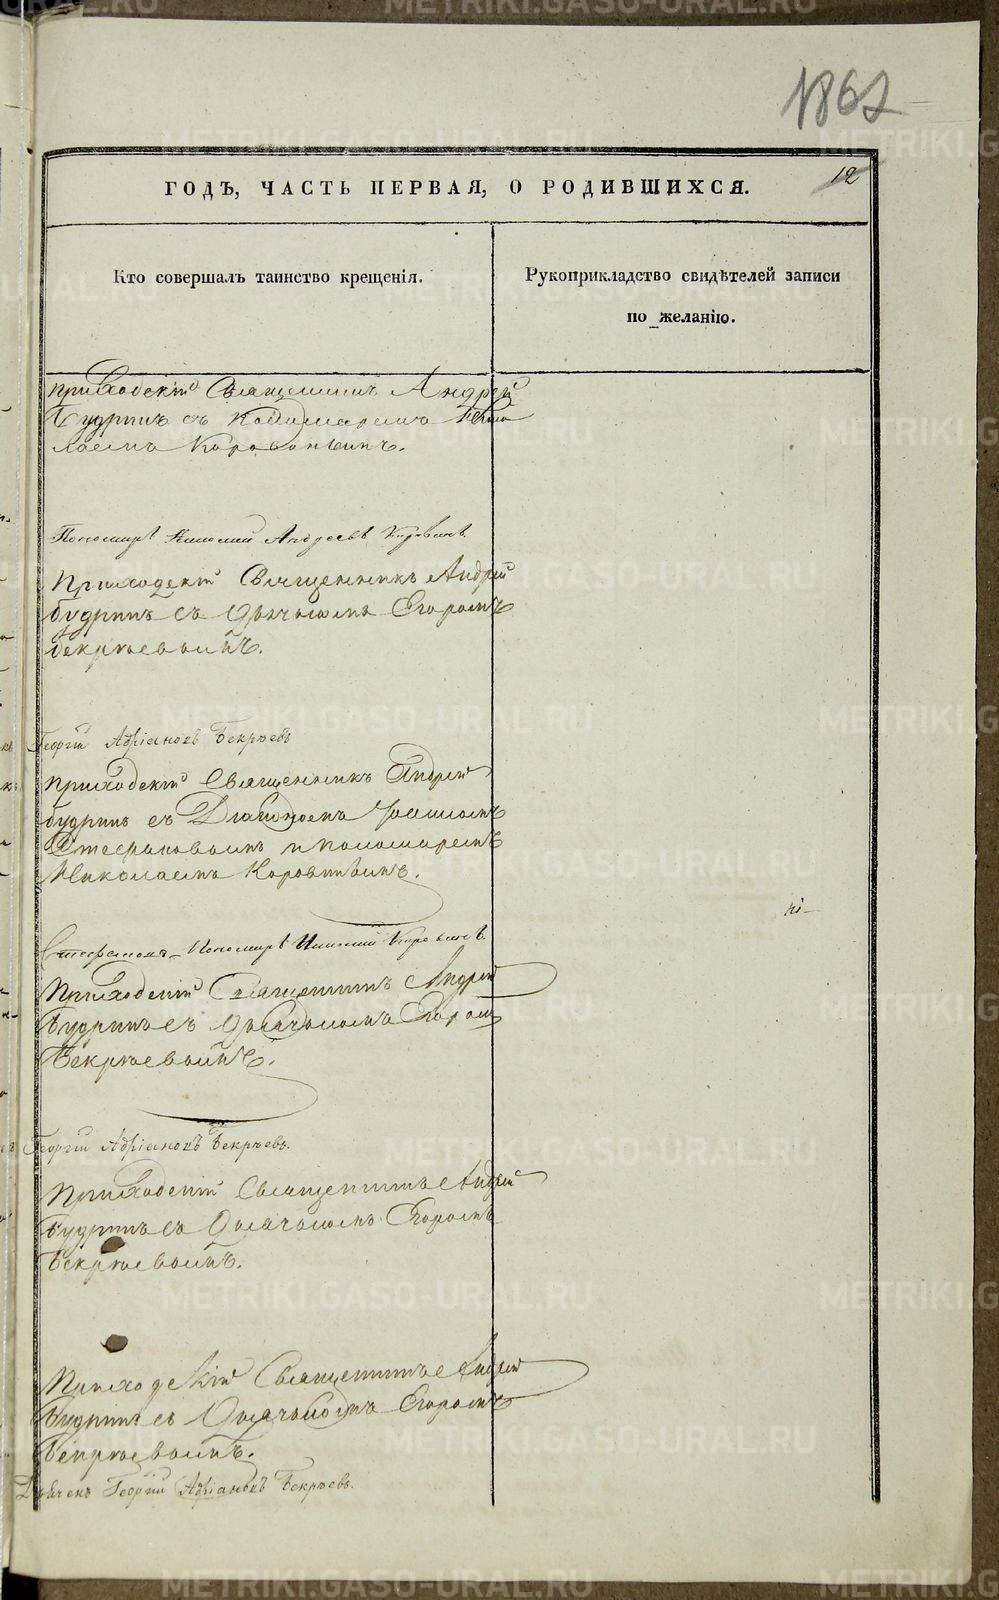 1862
12
ГОДЪ, ЧАСТЬ ПЕРВАЯ, О РОДИВШИХСЯ.
Кто совершалъ таинство крещенія.
Рукоприкладство свидѣтелей записи
по желанію.
Приходскій Священникъ Андрей
Будринъ съ Пономаремъ Нико
лаемъ Коровинымъ.
Пономарь Николай Андреевъ Коровинъ
Приходскій Священникъ Андрей
Будринъ съ Дьячкомъ Егоромъ
Бекряевымъ.
Георгій Адріановъ Бекряевъ
Приходскій Священникъ Андрей
Будринъ съ Діакономъ
Стефановымъ и пономаремъ
Николаемъ Коровинымъ.
Стефановъ Пономарь Николай Коровинъ.
Приходскій Священникъ Андрей
Будринъ съ Дьячкомъ Егоромъ
Бекряевымъ.
Георгій Адріановъ Бекряевъ.
Приходскій Священникъ Андрей
Будринъ съ Дьячкомъ Егоромъ
Бекряевымъ.
Приходскій Священникъ Андрей
Будринъ съ Дьячкомъ Егоромъ
Бекряевымъ.
Дьячекъ Георгій Адріановъ Бекряевъ.
METRIKI.GASO-URAL.RU